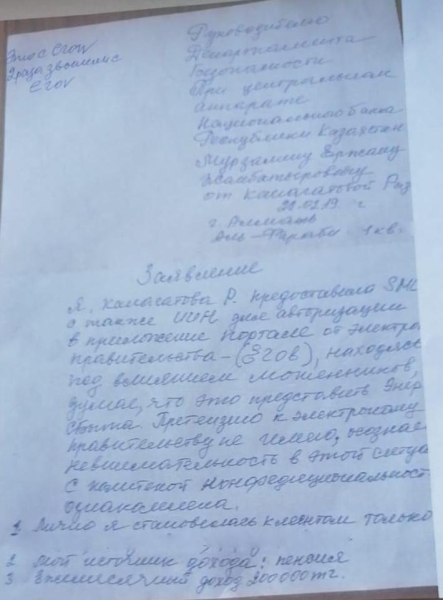 Руководителю
Департамента
Безопасности
При центральном
аппарате
Национального банка
Республики Казахстан
Мурзалину Ержану
от Канагатовой Риз
г. Алматы
Аль-Фараби
Заявление
Я, Канагатова Р. предоставила SMS
а также ИИН для авторизации
в приложение портале от электро
правительства - (EGOV), находясь
под влиянием мошенников,
думая, что это представить Энер
сбыта Претензию к электронному
правительству не имею, осознаю
невнимательность в этой ситуа
с политикой Конфедициональност
ознакомлена.
1 Лично я становилась клиентом только
2 мой источник дохода: пенсия
3 Ежемесячный доход 200000тг.